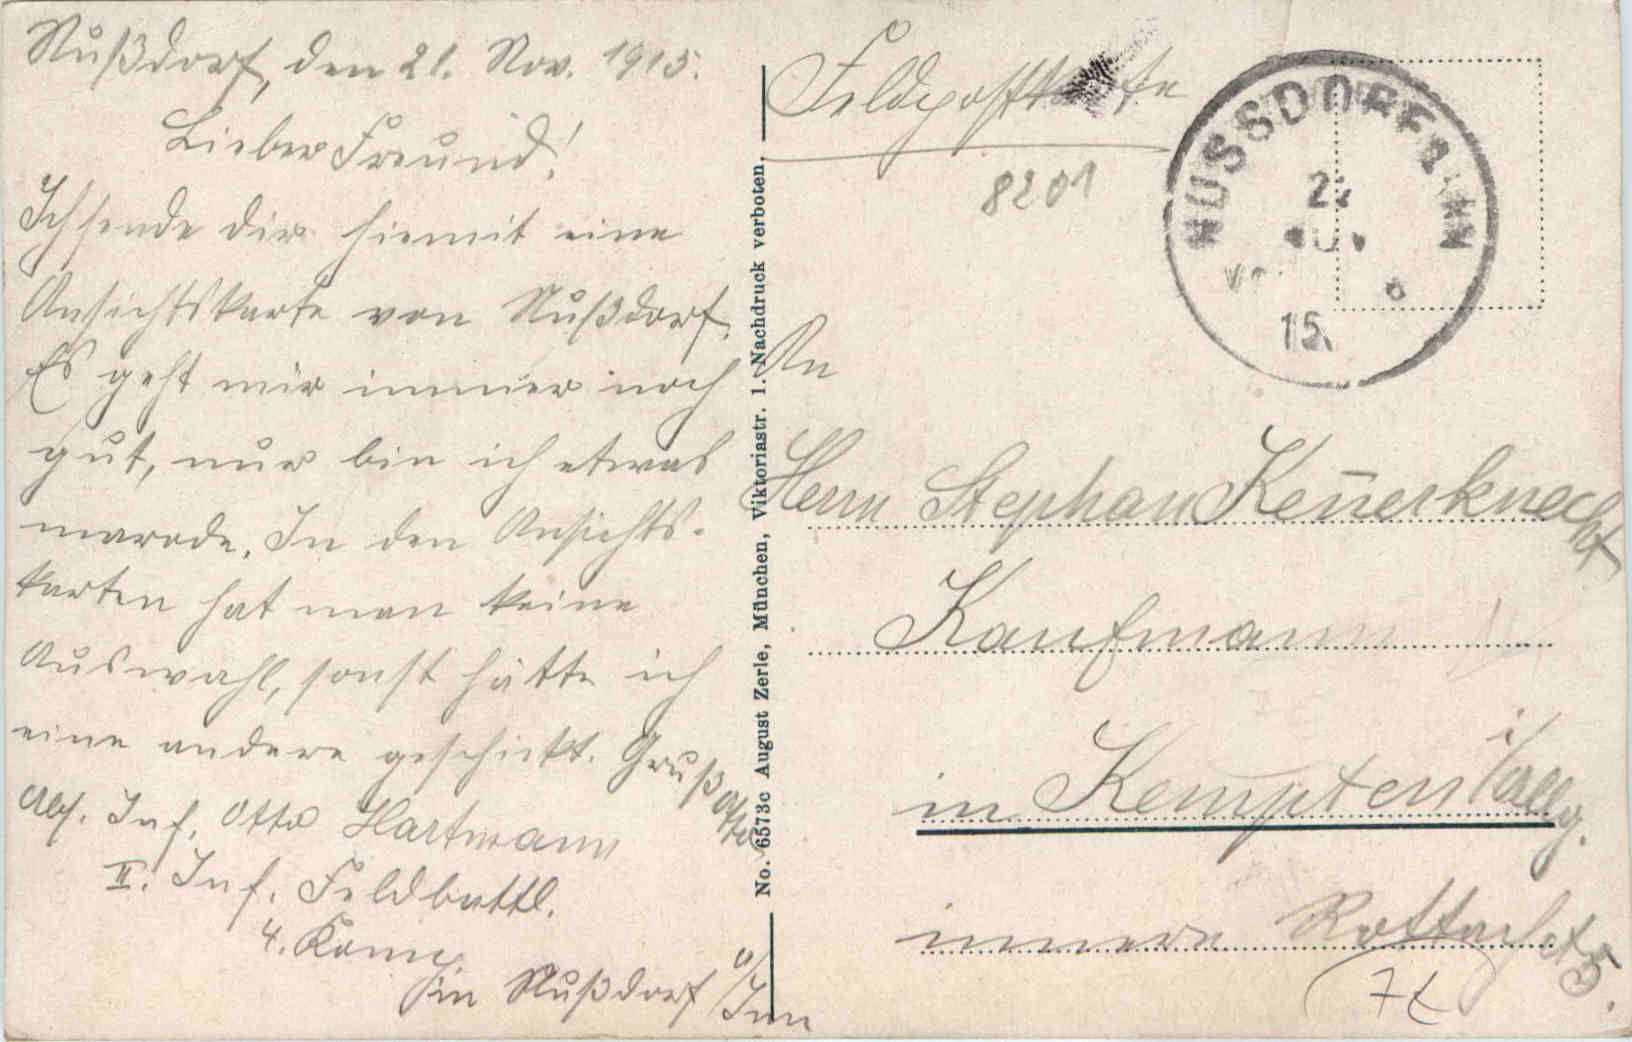 Nußdorf, den 21. Nov. 1915.
Lieber Freund!
Ich sende dir hiemit eine
Ansichtskarte von Nußdorf.
Es geht mir immer noch
gut, nur bin ich etwas
marode. In den Ansichts-
karten hat man keine
Auswahl, sonst hätte ich
eine andere geschickt. Gruß Otto
Abs. Inf. Otto Hartmann
II. Inf. Feldbattl.
4. Komp.
in Nußdorf a/Inn
No. 6573c August Zerle, München, Viktoriastr. 1. Nachdruck verboten.
Feldpostkarte
8201
NUSSDORF INN
NOV
15.
An
Herrn Stephan Kennerknecht
Kaufmann
in Kempten i/Allg.
innere Rottachst 5.